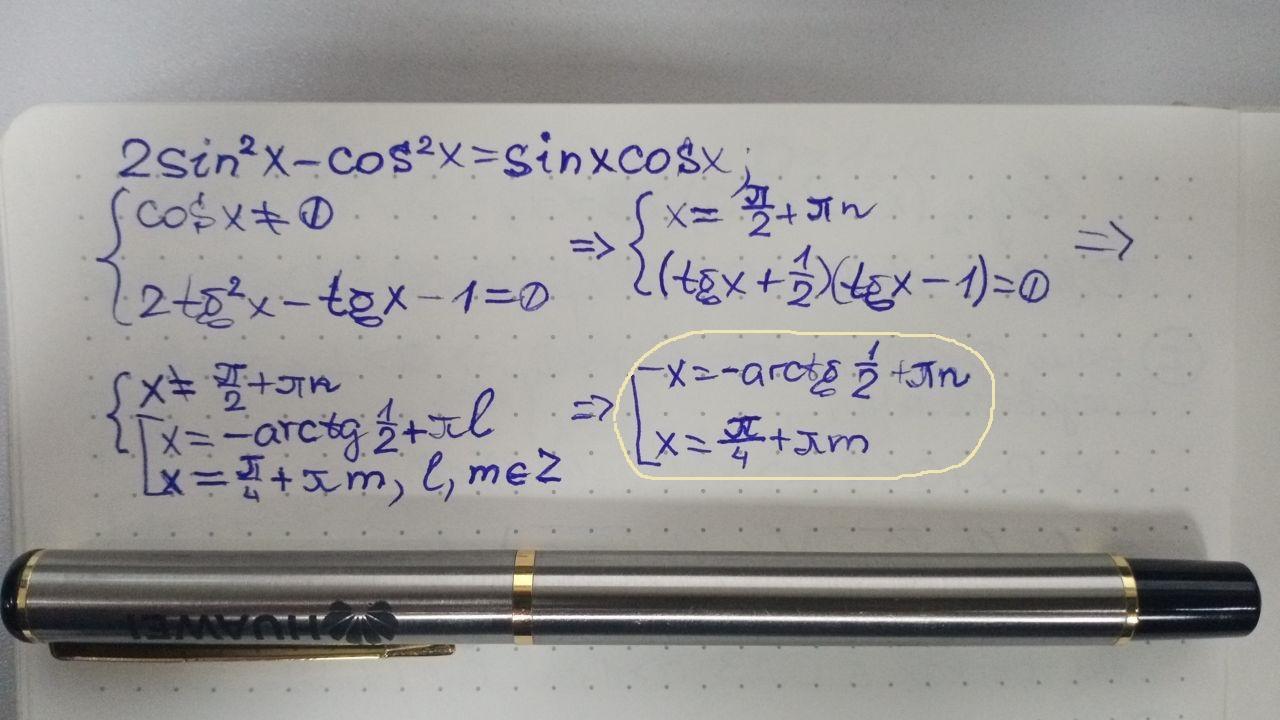 2sin²x-cos²x=sinxcosx;
{cosx≠0
{2tg²x-tgx-1=0
=>
{x= π/2+πn
{(tgx+1/2)(tgx-1)=0
=>
{x≠ π/2+πn
[x=-arctg 1/2+πl
[x=π/4+πm, l, m∈Z
=>
[x=-arctg 1/2+πn
[x=π/4+πm
HUAWEI